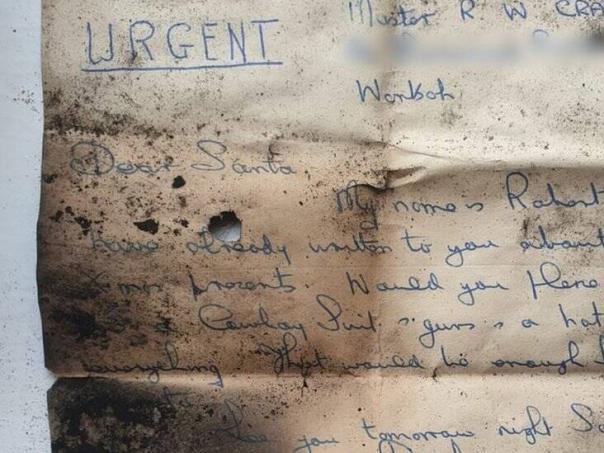 Master R W CRA
URGENT
Worksop
Dear Santa,
My name is Robert
have already written to you about
X-mas presents. Would you Please
a Cowboy Suit & guns & a hat
everything That would be enough
See you tomorrow night Sa